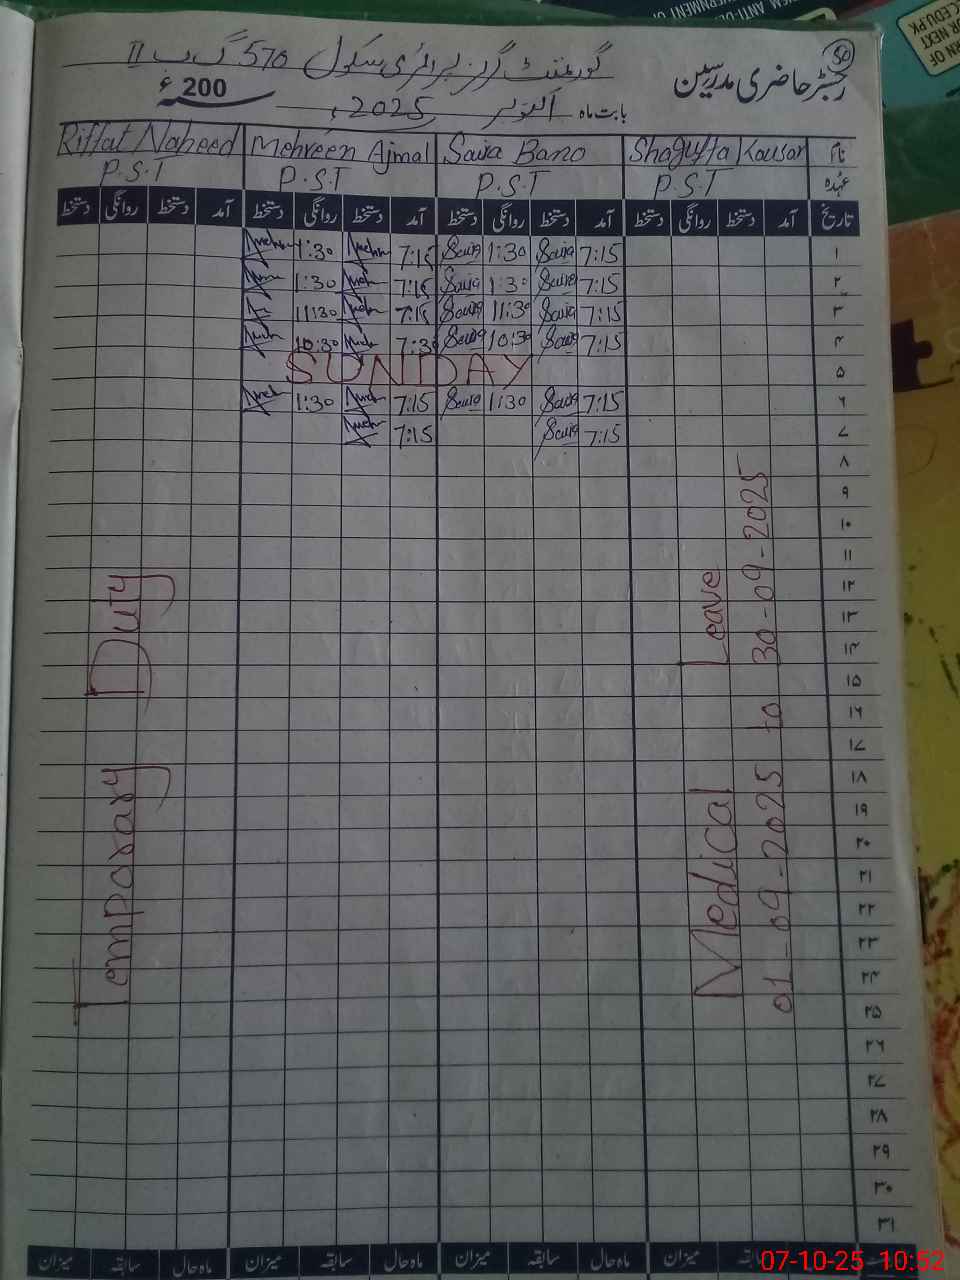 50
گورنمنٹ گرلز پرائمری سکول 570 گ ب II
رجسٹر حاضری مدرسین
بابت ماہ اکتوبر 2025ء
200 ء
نام Shagufta Kousar Saira Bano Mehreen Ajmal Riffat Naheed
عہدہ P.S.T P.S.T P.S.T P.S.T
تاریخ آمد دستخط روانگی دستخط آمد دستخط روانگی دستخط آمد دستخط روانگی دستخط آمد دستخط روانگی دستخط
۱ 7:15 Saira 1:30 Saira 7:15 Meh 1:30
۲ 7:15 Saira 1:30 Saira 7:15 Meh 1:30
۳ 7:15 Saira 11:30 Saira 7:15 Meh 11:30
۴ 7:15 Saira 10:30 Saira 7:30 Meh 10:30
۵ SUNDAY
۶ 7:15 Saira 1:30 Saira 7:15 Meh 1:30
۷ 7:15 Saira 7:15 Meh
۸
۹
۱۰
۱۱
۱۲
۱۳
۱۴
۱۵
۱۶
۱۷
۱۸
۱۹
۲۰
۲۱
۲۲
۲۳
۲۴
۲۵
۲۶
۲۷
۲۸
۲۹
۳۰
۳۱
Medical Leave
01-09-2025 to 30-09-2025
Temporary Duty
سابقہ میزان ماہ حال سابقہ میزان ماہ حال سابقہ میزان ماہ حال سابقہ میزان
07-10-25 10:52
CEDU.PK